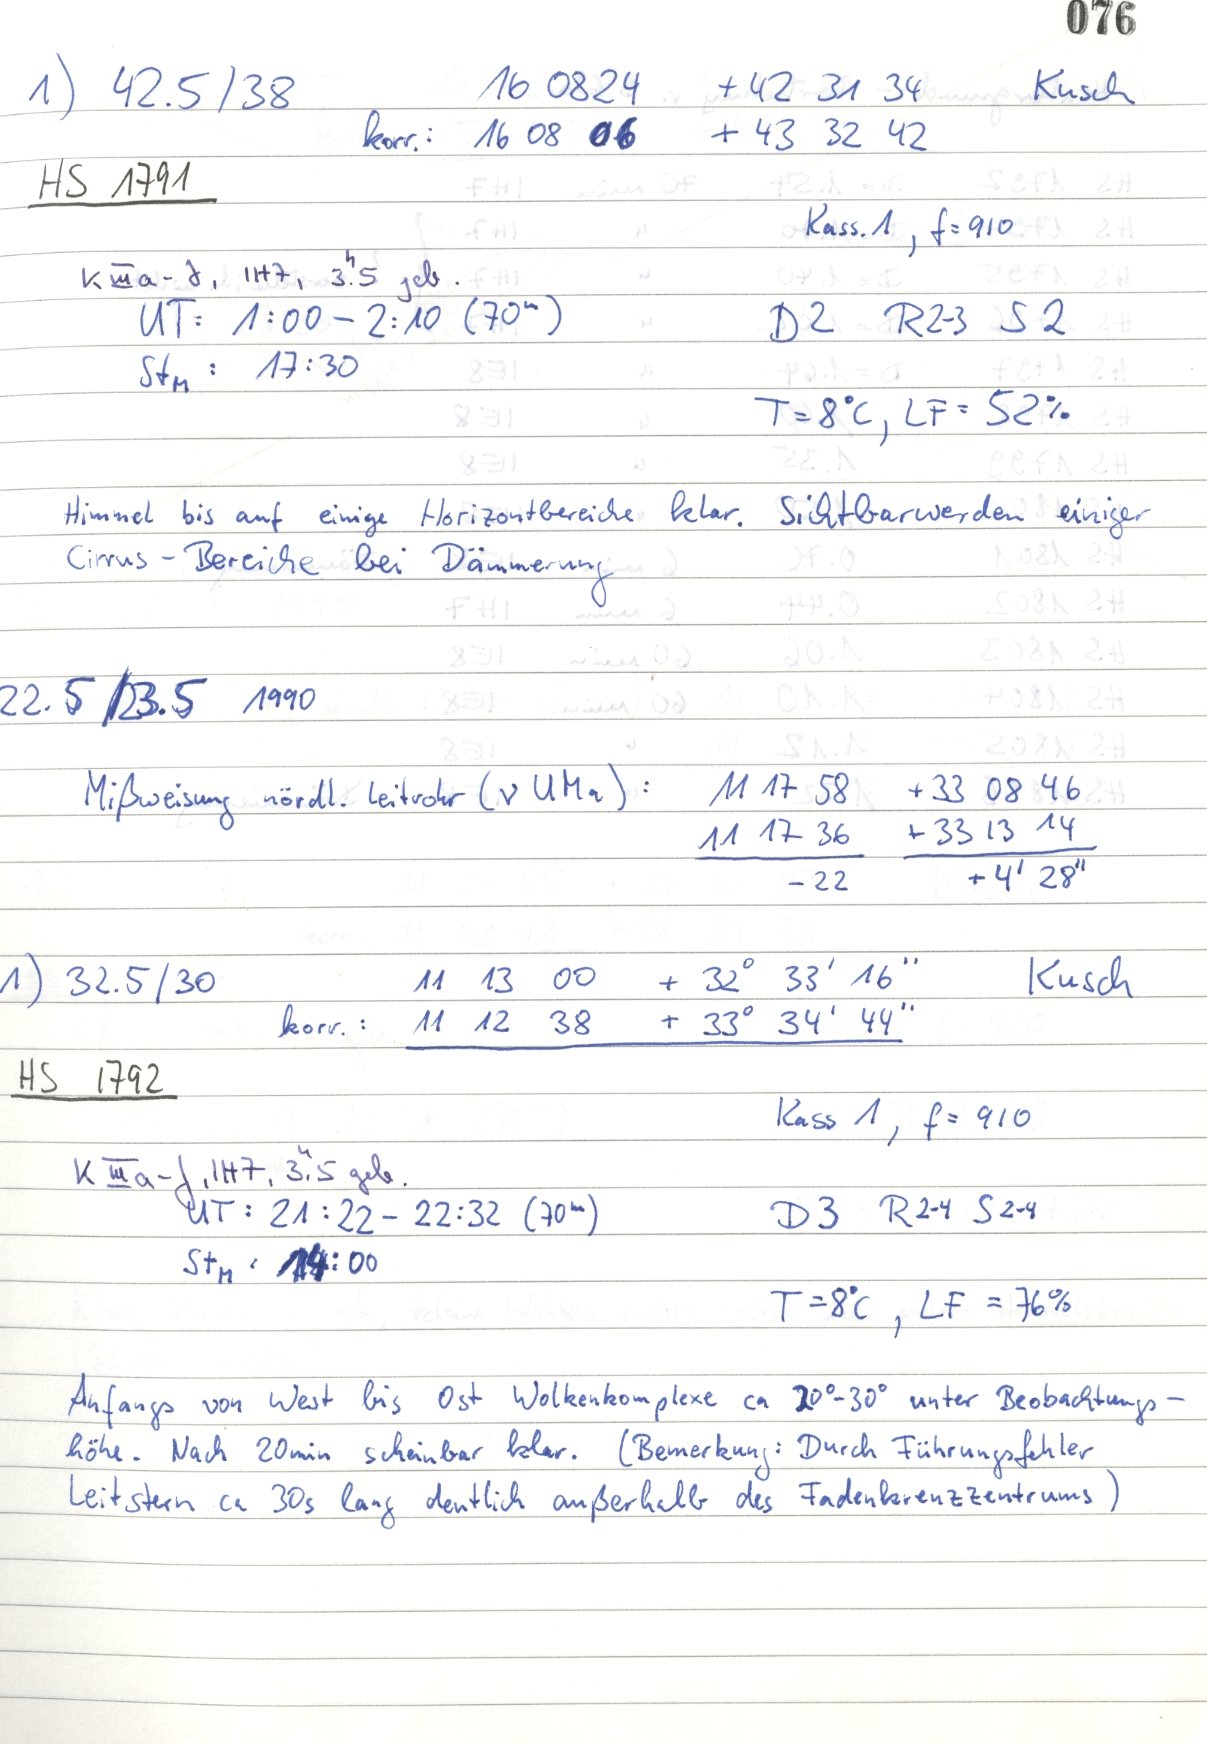 076
1) 42.5/38 16 08 24 + 42 31 34 Kusch
korr.: 16 08 06 + 43 32 42
HS 1791
Kass. 1, f = 910
K III a-J, 1H7, 3.ʰ5 geb.
UT: 1:00 – 2:10 (70ᵐ) D2 R2-3 S2
St_M : 17:30
T = 8°C, LF = 52%
Himmel bis auf einige Horizontbereiche klar. Sichtbarwerden einiger
Cirrus-Bereiche bei Dämmerung
22.5/23.5 1990
Mißweisung nördl. Leitrohr (ν UMa): 11 17 58 +33 08 46
11 17 36 +33 13 14
-22 +4' 28"
1) 32.5/30 11 13 00 + 32° 33' 16" Kusch
korr.: 11 12 38 + 33° 34' 44"
HS 1792
Kass 1, f = 910
K III a-J, 1H7, 3.ʰ5 geb.
UT: 21:22 – 22:32 (70ᵐ) D3 R2-4 S2-4
St_M : 14:00
T = 8°C, LF = 76%
Anfangs von West bis Ost Wolkenkomplexe ca 20°-30° unter Beobachtungs-
höhe. Nach 20min scheinbar klar. (Bemerkung: Durch Führungsfehler
Leitstern ca 30s lang deutlich außerhalb des Fadenkreuzzentrums)